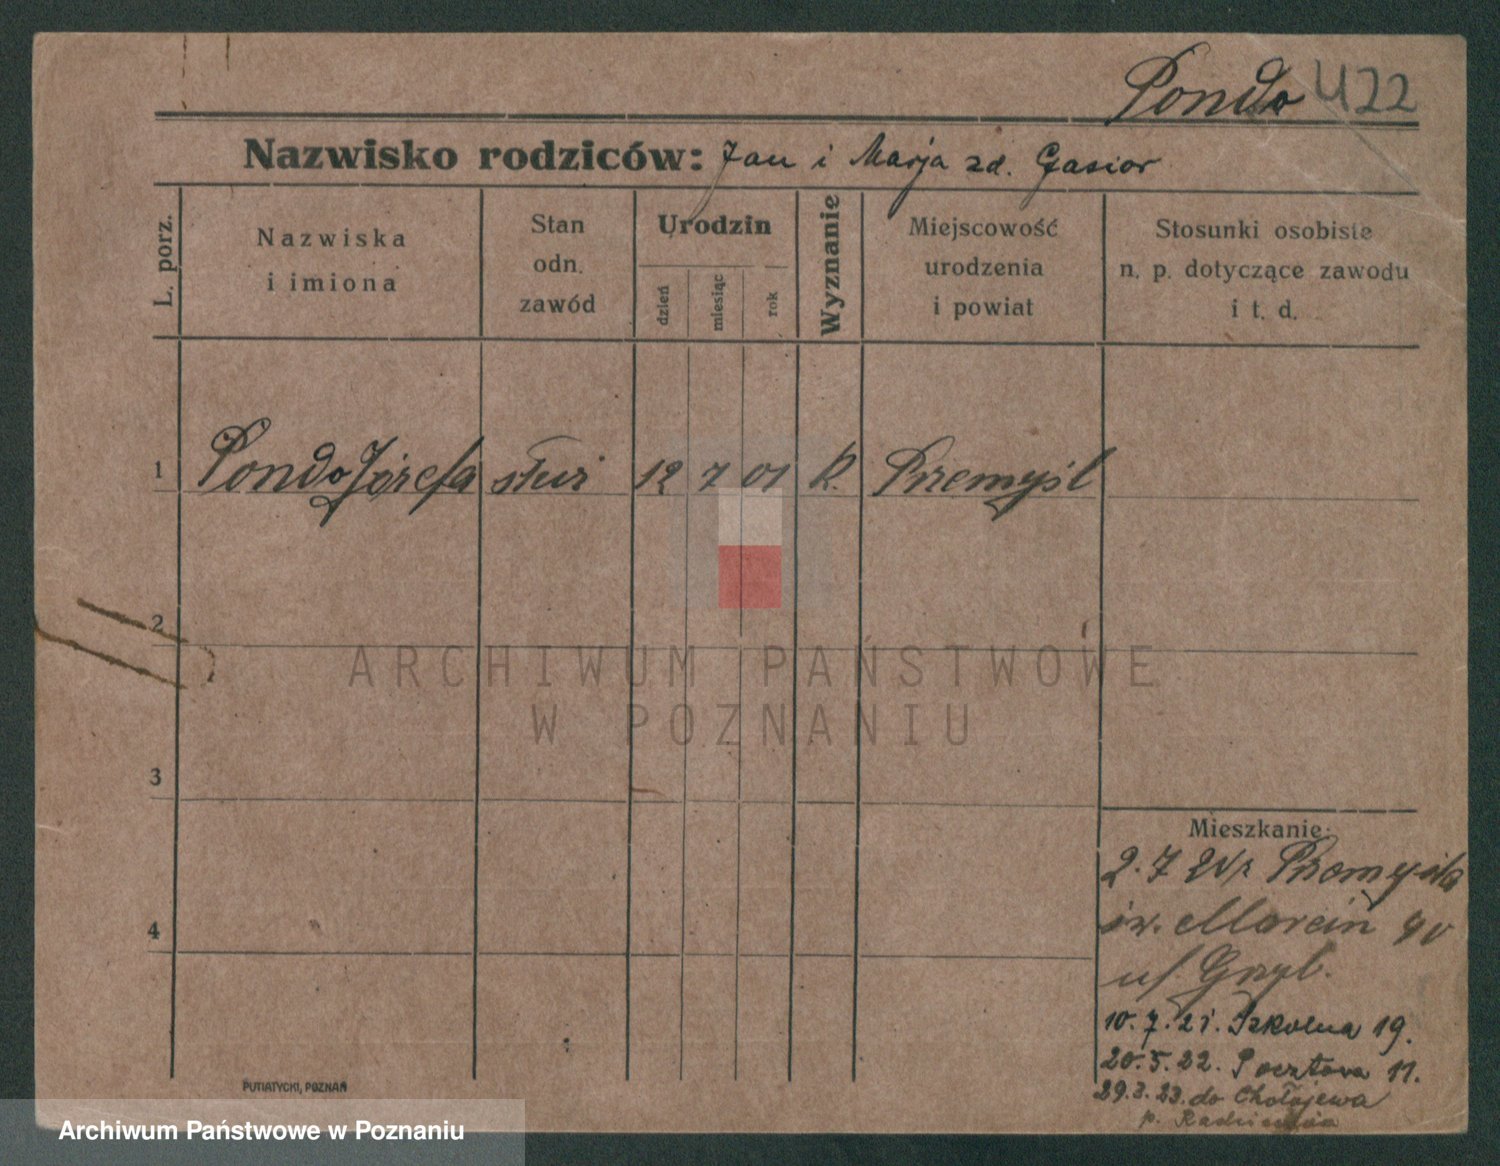 Pondo 422
Nazwisko rodziców: Jan i Marja zd. Gasior
L. porz.
Nazwiska
i imiona
Stan
odn.
zawód
Urodzin
dzień
miesiąc
rok
Wyznanie
Miejscowość
urodzenia
i powiat
Stosunki osobiste
n. p. dotyczące zawodu
i t. d.
1 Pondo Józefa służ 12 7 01 k. Przemyśl
2
ARCHIWUM PAŃSTWOWE
W POZNANIU
3
4
Mieszkanie:
2. 7 21 z Przemyśla
św. Marcin 40
u/ Grzyb.
10. 7. 21. Szkolna 19.
20. 5. 22. Pocztowa 11.
29. 3. 23. do Chołojewa
p. Radziechów
PUTIATYCKI, POZNAŃ
Archiwum Państwowe w Poznaniu